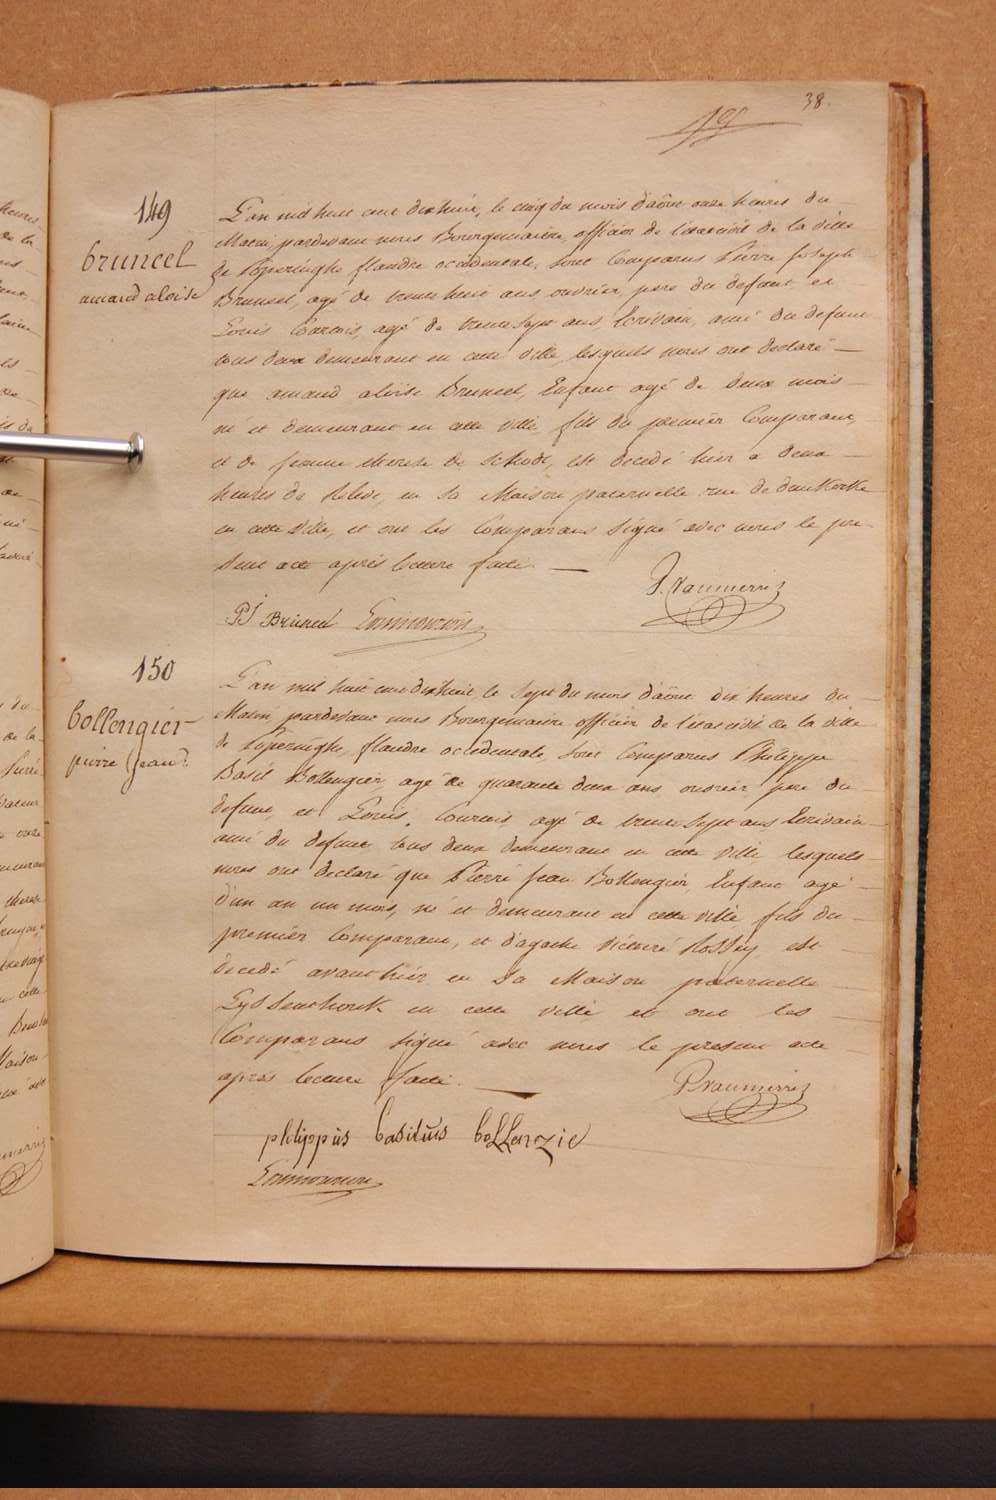 38.
149
bruneel
amand aloise
L'an mil huit cent dix huit, le cinq du mois d'août onze heures du
Matin, pardevant nous Bourguemaitre, officier de l'état civil de la ville
de Poperinghe, flandre occidentale, sont Comparus Pierre Joseph
Bruneel, agé de trente huit ans, ouvrier, pere du defunt et
Louis Courtois, agé de trente sept ans, Ecrivain, ami du defunt
tous deux demeurant en cette ville, lesquels nous ont declaré
que amand aloise Bruneel, Enfant agé de deux mois
né et demeurant en cette ville, fils du premier Comparant,
et de femme therese de schodt, est decedé hier a deux
heures de relevée, en sa Maison paternelle rue de dunkerke
en cette ville, et ont les Comparans signé avec nous le pre-
sent acte après lecture faite.
PJ Bruneel
150
bollengier
pierre jean
L'an mil huit cent dix huit le sept du mois d'août dix heures du
Matin, pardevant nous Bourguemaitre officier de l'état civil de la ville
de Poperinghe, flandre occidentale, sont Comparus Philippe
Basil Bollengier, agé de quarante deux ans ouvrier, pere du
defunt, et Louis, Courtois, agé de trente sept ans Ecrivain
ami du defunt, tous deux demeurant en cette ville lesquels
nous ont declaré que Pierre Jean Bollengier, Enfant agé
d'un an un mois, né et demeurant en cette ville fils du
premier Comparant, et d'agathe Rossey, est
decedé avant hier en sa Maison paternelle
en cette ville et ont les
Comparans signé avec nous le present acte
après lecture faite.
philippus basilius bollenzier